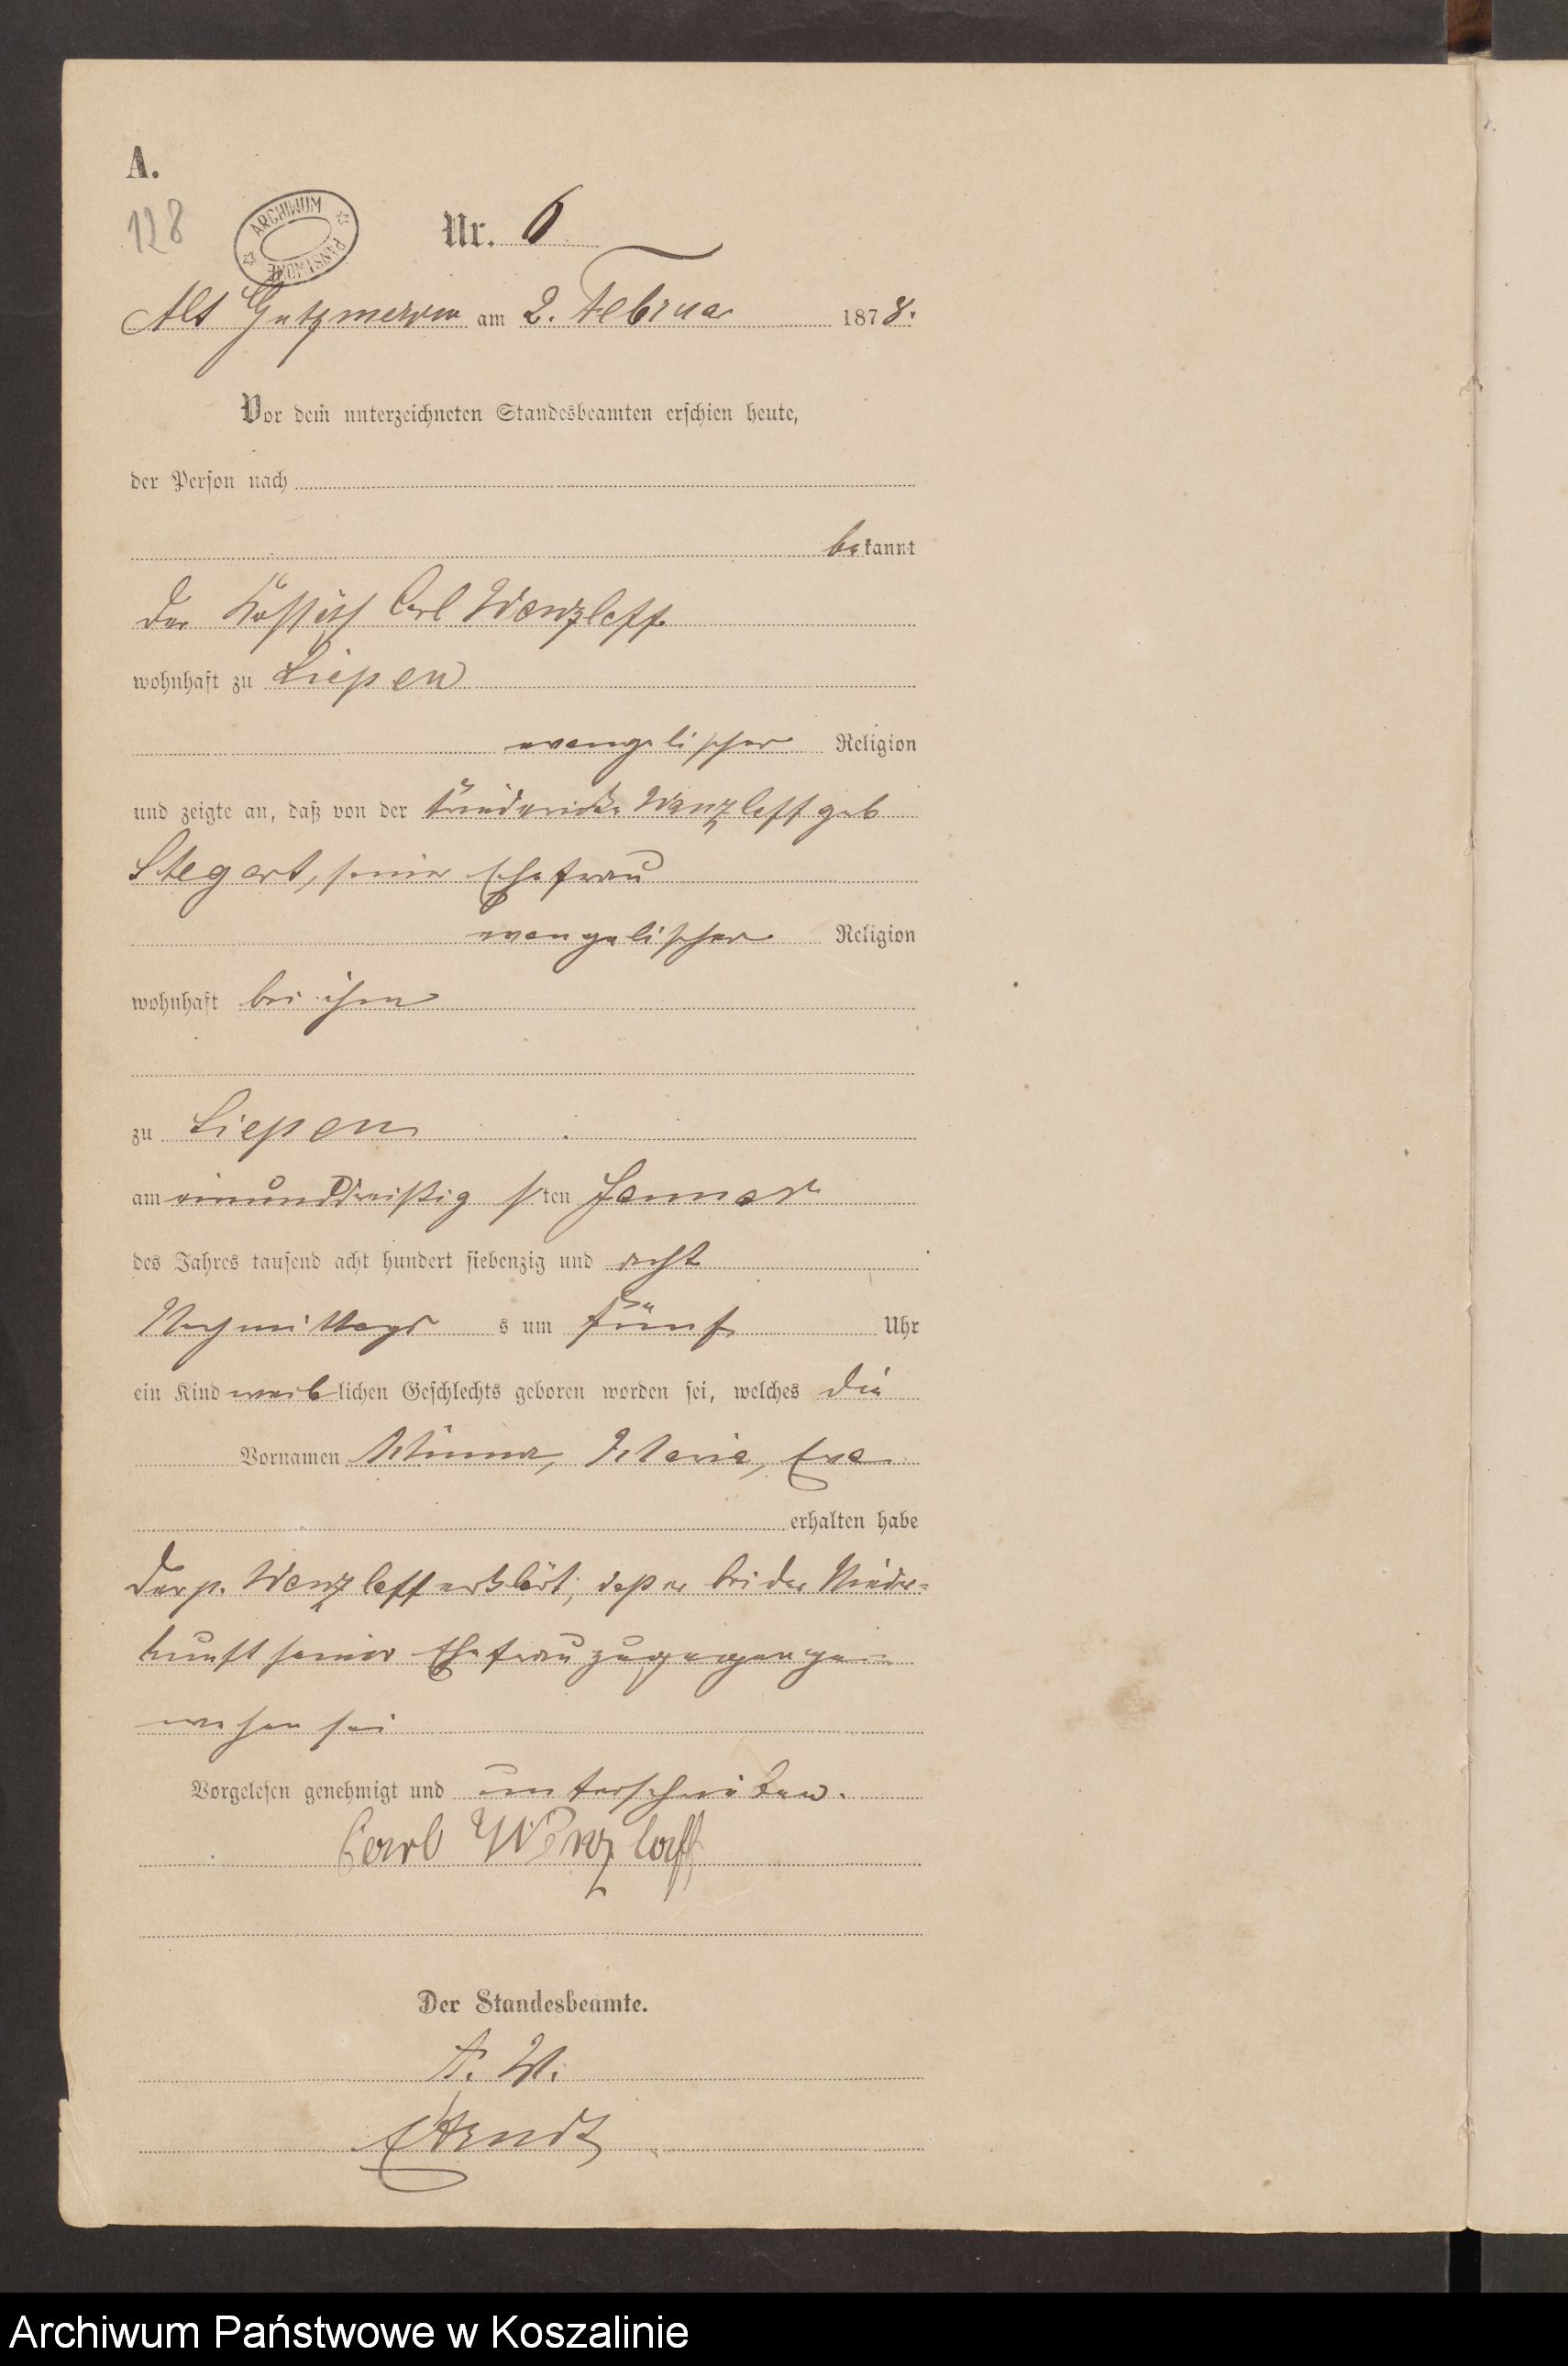 A.
128
ARCHIWUM PAŃSTWOWE
Nr. 6
Alt Gutzmerow am 2. Februar 1878.
Vor dem unterzeichneten Standesbeamten erschien heute,
der Person nach
bekannt
der Carl Wenzlaff
wohnhaft zu Liepen
evangelischer Religion
und zeigte an, daß von der Friedericke Wenzlaff geb
Stegert, seiner Ehefrau
evangelischer Religion
wohnhaft bei ihm
zu Liepen
am einunddreißig sten Januar
des Jahres tausend acht hundert siebenzig und acht
Nachmittags s um fünf Uhr
ein Kind weiblichen Geschlechts geboren worden sei, welches die
Vornamen Minna, Maria, Eva
erhalten habe
der p. Wenzlaff erklärt, daß er bei der Nieder=
kunft seiner Ehefrau zugegen ge=
wesen sei
Vorgelesen genehmigt und unterschrieben.
Carl Wenzlaff
Der Standesbeamte.
Arndt
Archiwum Państwowe w Koszalinie